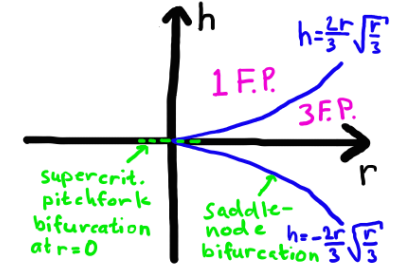 h
h=2r/3 √r/3
1 F.P.
3 F.P.
r
supercrit.
pitchfork
bifurcation
at r=0
saddle-
node
bifurcation
h=-2r/3 √r/3